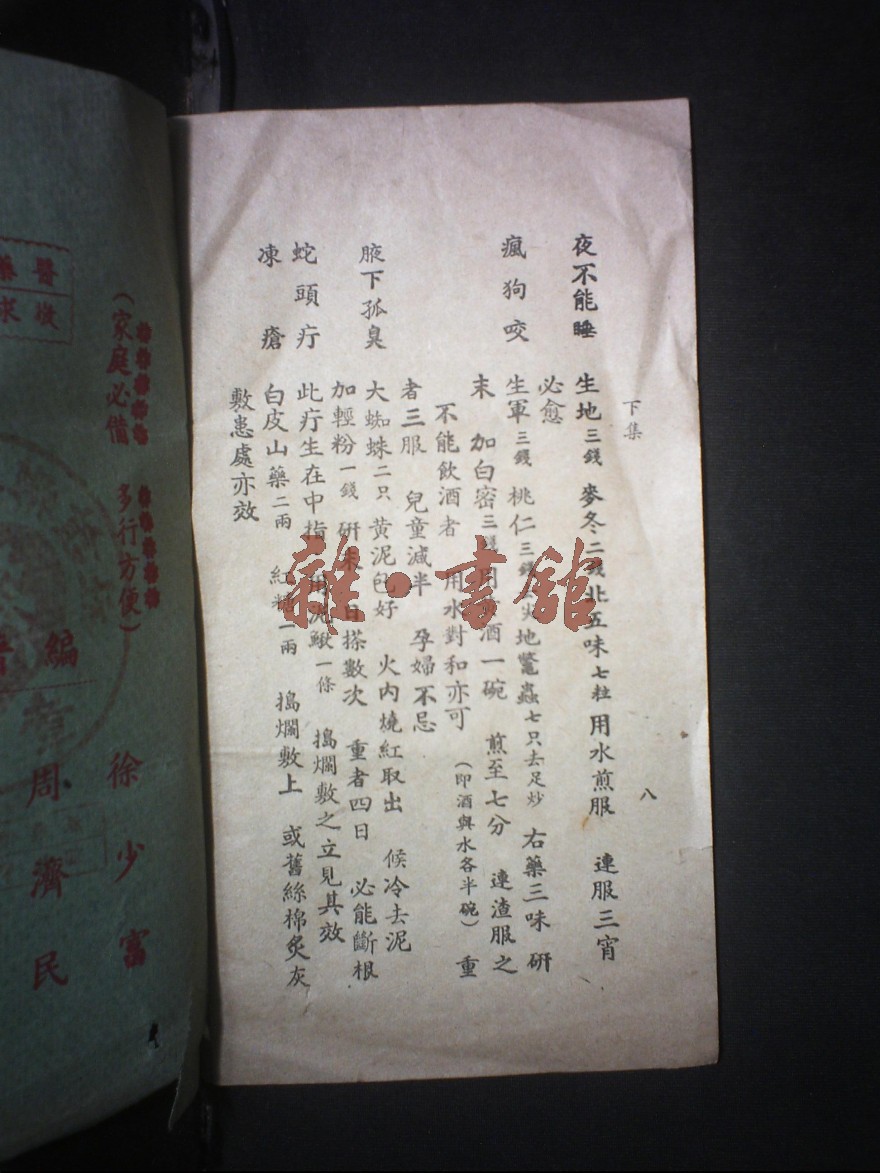 下集
八
夜不能睡　生地三錢　麥冬二錢　北五味七粒　用水煎服　連服三宵
必愈
瘋狗咬　生軍三錢　桃仁三錢　火地鱉蟲七只去足炒　右藥三味　研
末　加白密三錢　用酒一碗　煎至七分　連渣服之
不能飲酒者　用水對和亦可　（即酒與水各半碗）　重
者三服　兒童減半　孕婦不忌
腋下孤臭　大蜘蛛二只　黃泥包好　火內燒紅取出　候冷去泥
加輕粉一錢　研末　日搽數次　重者四日　必能斷根
蛇頭疔　此疔生在中指　用泥鰍一條　搗爛敷之立見其效
凍瘡　白皮山藥二兩　紅糖一兩　搗爛敷上　或舊絲棉炙灰
敷患處亦效
雜·書館
醫
藥
求
（家庭必備　多行方便）
編
徐少富
周濟民